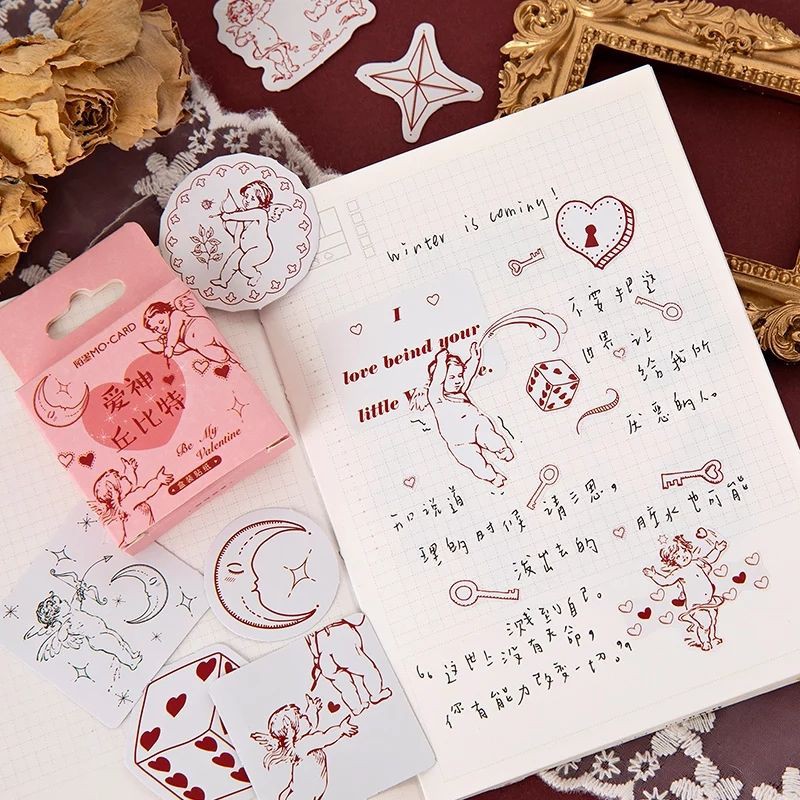 陌墨MO·CARD
爱神!
丘比特
Be My
Valentine
盒装贴纸
Winter is coming!
I
love beind your
little
不要把这
世界 让
给我所
厌恶的人。
说道
理的时候 请三思，
泼出去的
脏水也可能
溅到自己。
“这世上没有天命，
你有能力改变一切。”